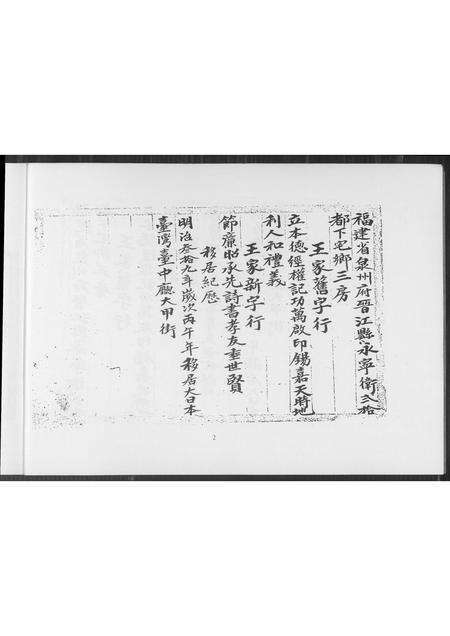 福建省泉州府晉江縣永寧衛弍拾
都下宅鄉三房
王家舊字行
立本德經權記功萬啟印錫嘉天時地
利人和禮義
王家新字行
節廉昭承先詩書孝友垂世賢
移居紀歷
明治叁拾九年歲次丙午年移居大日本
臺灣臺中廳大甲街
2